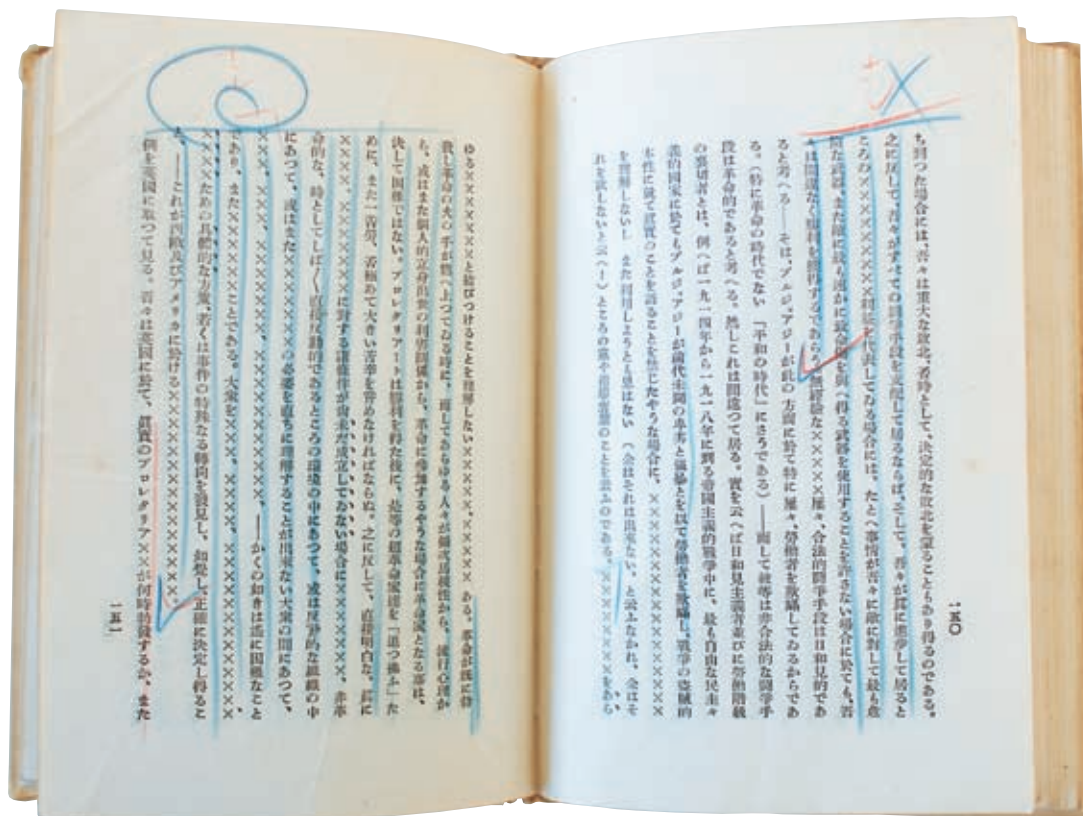 ち到つた場合には、吾々は重大な敗北、否時として、決定的な敗北を蒙ることもあり得るのである。
之に反して、吾々がすべての闘爭手段を支配して居るならば、そして、吾々が眞に進歩して居ると
ころの××××××××利益を代表してゐる場合には、たとへ事情が吾々に敵に對して最も危
險な武器、また敵に最も速かに致命傷を與へ得る武器を使用することを許さない場合に於ても、吾
々は間違なく勝利を獲得するであらう。無經驗な××××屡々、合法的闘爭手段は日和見的であ
ると考へる――そは、ブルジヨアジーが此の方面に於て特に屡々、勞働者を欺瞞してゐるからであ
る。(特に革命の時代でない『平和の時代』にさうである)――而して彼等は非合法的な闘爭手
段は革命的であると考へる。然しこれは間違つて居る。實を云へば日和見主義者並びに勞働階級
の裏切者とは、例へば一九一四年から一九一八年に到る帝國主義的戰爭中に、最も自由な民主々
義的國家に於てもブルジヨアジーが前代未聞の と強暴とを以て勞働者を欺瞞し、戰爭の盜賊的
本性に就て眞實のことを語ることを禁じたやうな場合に、××××××××××
を理解しないし また利用しようとも思はない (余はそれは出來ない、と云ふなかれ、余はそ
れを欲しないと云(!)ところの黨や指導者達のことを云ふのである。×××××××××をあら
一五〇
ゆる××××××××と結びつけることを理解しない×××××××××× ある。革命が既に勃
發し革命の火の手が燃へ上つてゐる時に、而してあらゆる人々が 、流行心理か
ら、或はまた個人的立身出世の利害關係から、革命に參加するやうな場合に革命家となる事は、
決して困難ではない。プロレタリアートは勝利を得た後に、是等の超革命家達を『追つ拂ふ』た
めに、また一苦勞、否極めて大きい苦辛を甞めなければならぬ。之に反して、直接明白な、眞に
××××、××××××××に對する諸條件が尚未だ成立してゐない場合に×××××××、非革
命的な、時としてしば〱直接反動的であるところの環境の中にあつて、或は反動的な組織の中
にあつて、或はまた××××××××××の必要を直ちに理解することが出來ない大衆の間にあつて、
×××、××××××、×××××××、××××××××××××、――かくの如きは遙に困難なこと
であり、また××××××××ことである。大衆を×××、××××、××××××××××××
××××ための具體的な方策、若くは事件の特殊なる轉向を發見し、知覺し、正確に決定し得るこ
と、――これが西歐及びアメリカに於ける××××××××××××××××
例を英國に取つて見る。吾々は英國に於て、眞實のプロレタリア××が何時勃發するか、また
一五一